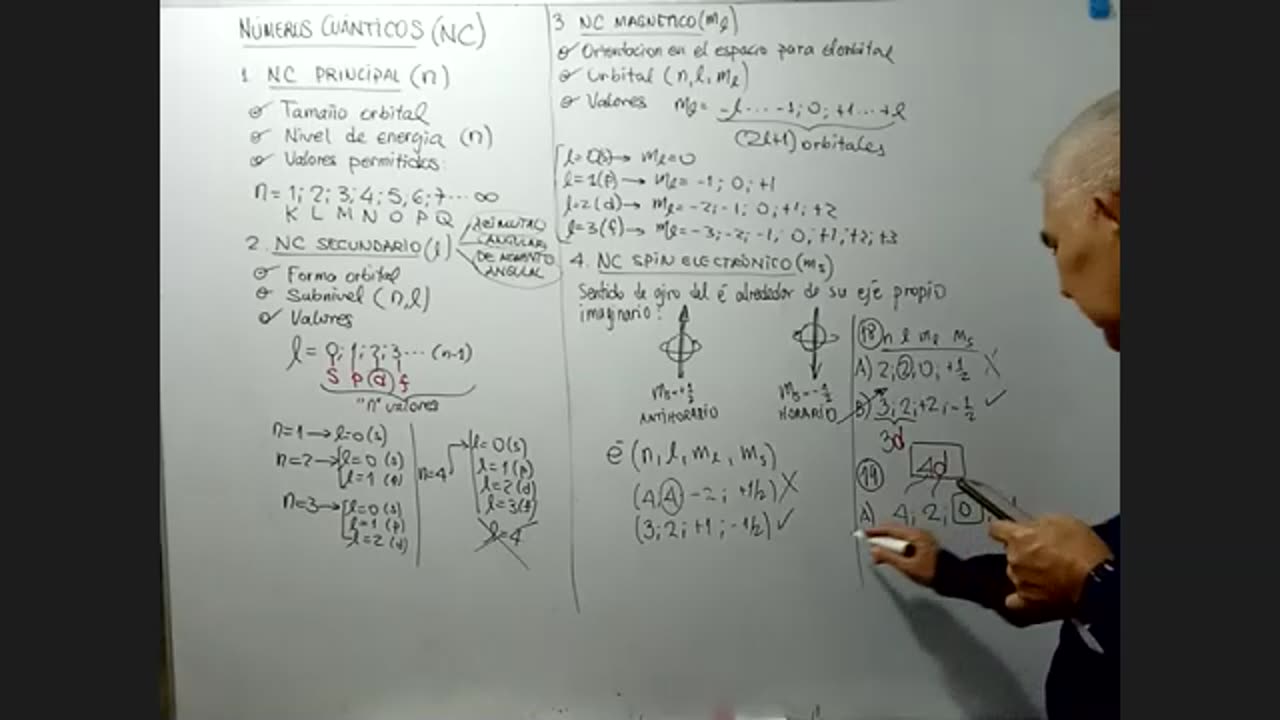 NÚMEROS CUÁNTICOS (NC)
1 NC PRINCIPAL (n)
Tamaño orbital
Nivel de energia (n)
Valores permitidos:
n = 1; 2; 3; 4; 5, 6; 7 ... ∞
K L M N O P Q
2. NC SECUNDARIO (l)
AZIMUTAL
ANGULAR
DE MOMENTO
ANGULAR
Forma orbital
Subnivel (n, l)
Valores
l = 0; 1; 2; 3 ... (n-1)
s p d f
"n" valores
n=1 → l=0(s)
n=2 → l=0 (s)
l=1 (p)
n=3 → l=0(s)
l=1 (p)
l=2 (d)
n=4
l=0(s)
l=1(p)
l=2(d)
l=3(f)
l=4
3 NC MAGNETICO (ml)
Orientacion en el espacio para el orbital
Orbital (n, l, ml)
Valores ml = -l ... -1; 0; +1 ... +l
(2l+1) orbitales
l=0(s) → ml=0
l=1(p) → ml= -1; 0; +1
l=2(d) → ml= -2; -1; 0; +1; +2
l=3(f) → ml= -3; -2; -1, 0, +1, +2; +3
4. NC SPIN ELECTRÓNICO (ms)
Sentido de giro del é alrededor de su eje propio
imaginario:
ms=+1/2
ANTIHORARIO
ms=-1/2
HORARIO
é (n, l, ml, ms)
(4, 4, -2; +1/2) X
(3; 2; +1; -1/2) ✓
18 n l ml ms
A) 2; 2; 0; +1/2 X
B) 3; 2; +2; -1/2 ✓
3d
19 4d
A) 4; 2; 0;